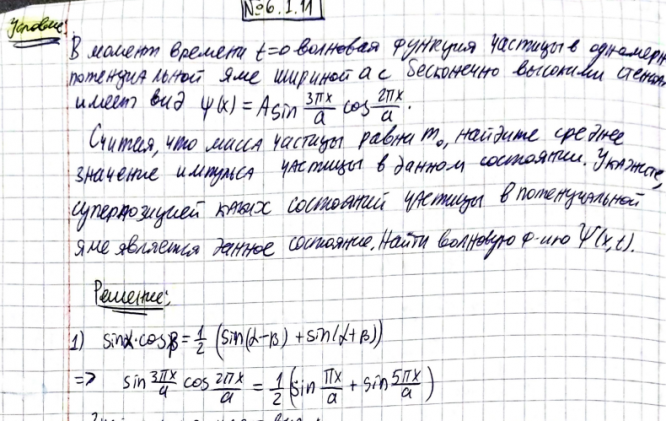 №6.1.11
Условие:
В момент времени t=0 волновая функция частицы в одномерн
потенциальной яме шириной a с бесконечно высокими стенк
имеет вид ψ(x) = A sin 3πx/a cos 2πx/a.
Считая, что масса частицы равна m₀, найдите среднее
значение импульса частицы в данном состоянии. Укажите,
суперпозицией каких состояний частицы в потенциальной
яме является данное состояние. Найти волновую ф-ию Ψ(x,t).
Решение:
1) sinα·cosβ = 1/2 (sin(α-β) + sin(α+β))
=> sin 3πx/a cos 2πx/a = 1/2 (sin πx/a + sin 5πx/a)